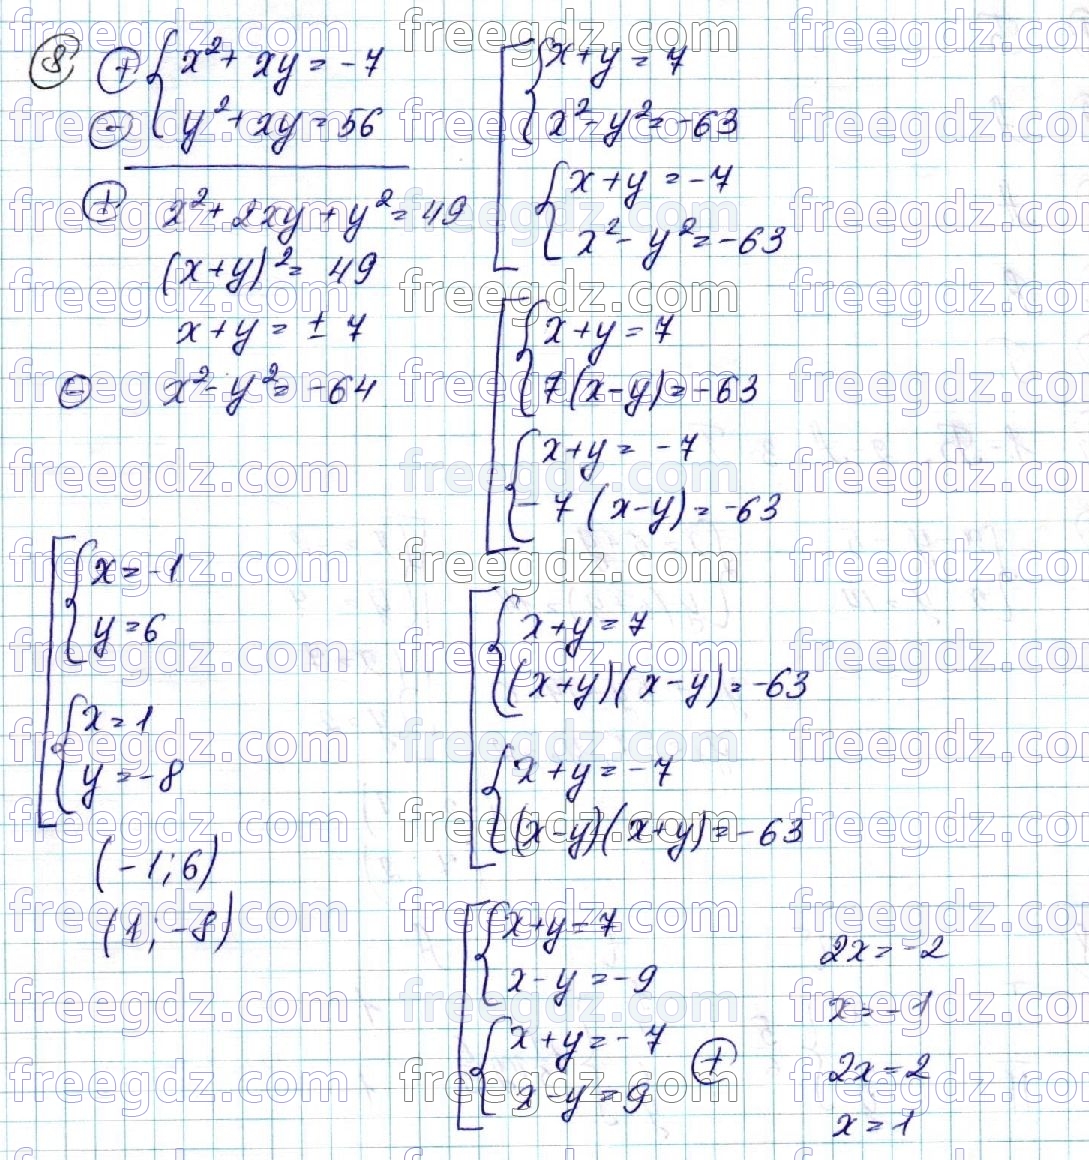 8 ⊕ { x² + xy = -7
⊖ y² + xy = 56
⊕ x² + 2xy + y² = 49
(x+y)² = 49
x + y = ± 7
⊖ x² - y² = -64
[ { x + y = 7
x² - y² = -63
{ x + y = -7
x² - y² = -63
[ { x + y = 7
7(x-y) = -63
{ x + y = -7
-7(x-y) = -63
[ { x + y = 7
(x+y)(x-y) = -63
{ x + y = -7
(x-y)(x+y) = -63
[ { x + y = 7
x - y = -9
{ x + y = -7
x - y = 9
⊕
2x = -2
x = -1
2x = 2
x = 1
[ { x = -1
y = 6
{ x = 1
y = -8
(-1; 6)
(1; -8)
freegdz.com